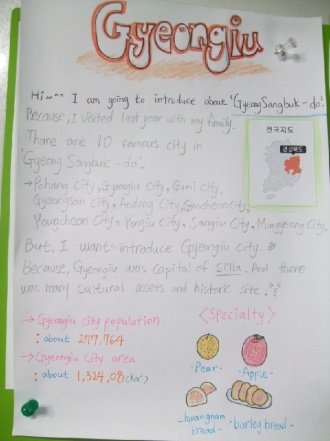 Gyeongju
Hi~^^ I am going to introduce about 'GyeongSangbuk-do'
Because, I visited last year with my family.
Thare are 10 famous city in
'Gyeong Sangbuk-do'.
전국지도
경상북도
→ Pohang City, Gyongju City, Gumi City,
Gyeongsan City, Andong City, Gimcheon City,
Yeongcheon City, Yongju City, Sangju City, Mungyeong City.
But, I want introduce Gyeongju city.
Because, Gyeongju was capital of Silla. And there
was many cultural assets and historic site.
→ Gyeongju city population
: about 277,764
→ Gyeongju city area
: about 1,324,08 (km²)
<Specialty>
-Pear-
-Apple-
-hwangnam
bread-
-barley bread-